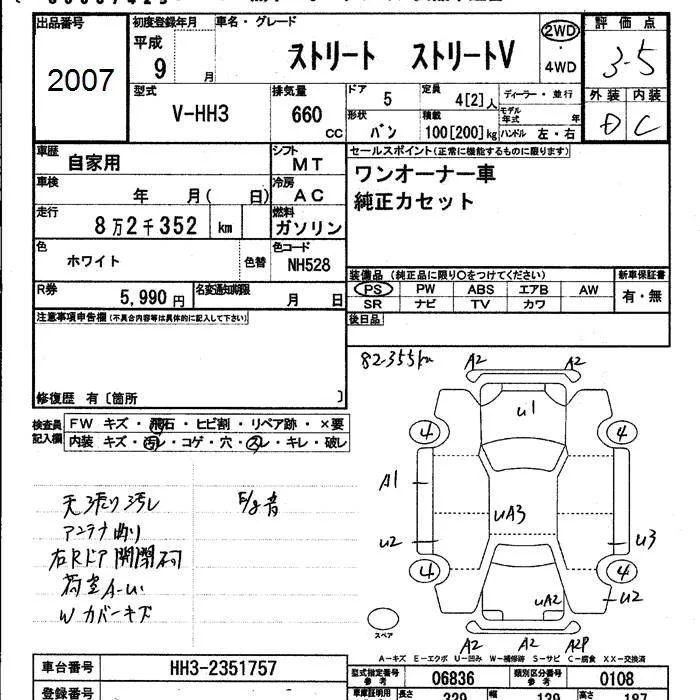 出品番号
2007
初度登録年月
平成
9
月
車名・グレード
ストリート ストリートV
2WD
・
4WD
評価点
3.5
外装 内装
D C
型式
V-HH3
排気量
660
CC
ドア
5
定員
4[2]人
ディーラー・並行
形状
バン
積載
100[200]kg
モデル年式
年
ハンドル 左・右
車歴
自家用
シフト
MT
車検
年 月( 日)
冷房
AC
走行
8万2千352 km
燃料
ガソリン
色
ホワイト
色替
色コード
NH528
R券
5,990 円
名変通知期限
月 日
セールスポイント(正常に機能するものに限ります)
ワンオーナー車
純正カセット
装備品 (純正品に限り○をつけてください)
PS PW ABS エアB AW
SR ナビ TV カワ
新車保証書
有・無
後日品
注意事項申告欄(不具合内容等は具体的に記入して下さい)
修復歴 有〔箇所 〕
検査員記入欄
FW キズ・飛石・ヒビ割・リペア跡・×要
内装 キズ・汚レ・コゲ・穴・スレ・キレ・破レ
天張り汚レ
アンテナ曲り
右Rドア開閉
荷室A-U
Wカバーキズ
82355km
A2 A2
U1
4 4
A1
UA3
U2 U3
4 4
UA2
U2
A2 A2 A2P
スペア
A-キズ E-エクボ U-凹み W-補修跡 S-サビ C-腐食 XX-交換済
車台番号
HH3-2351757
型式指定番号
参考
06836
類別区分番号
参考
0108
登録番号
車庫証明用
参考
長さ
329
幅
139
高さ
187